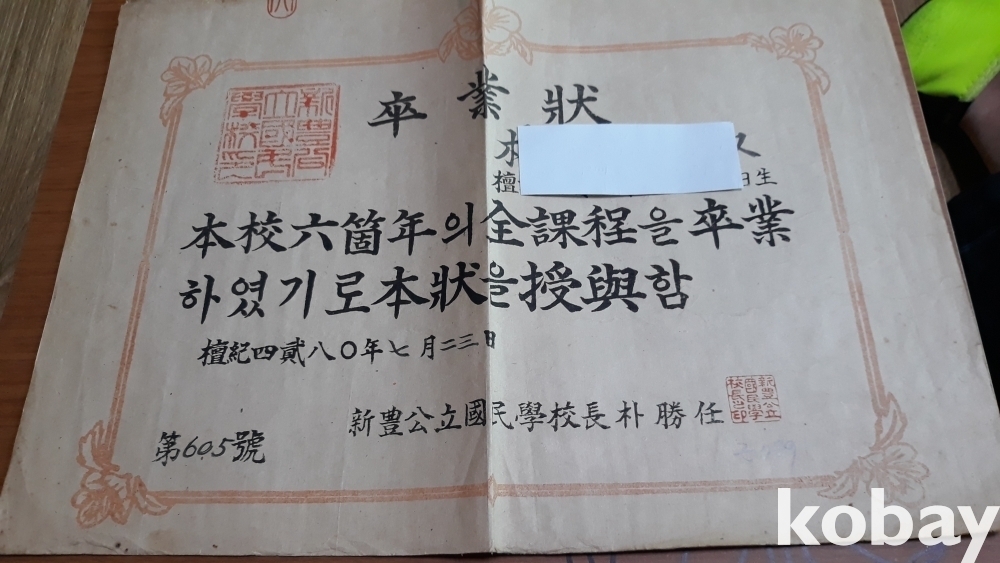 卒業狀
檀 日生
本校六箇年의全課程을卒業
하였기로本狀을授與함
檀紀四貳八〇年七月二三日
新豊公立國民學校長朴勝任
新豊公立國民學校長之印
第605號
kobay